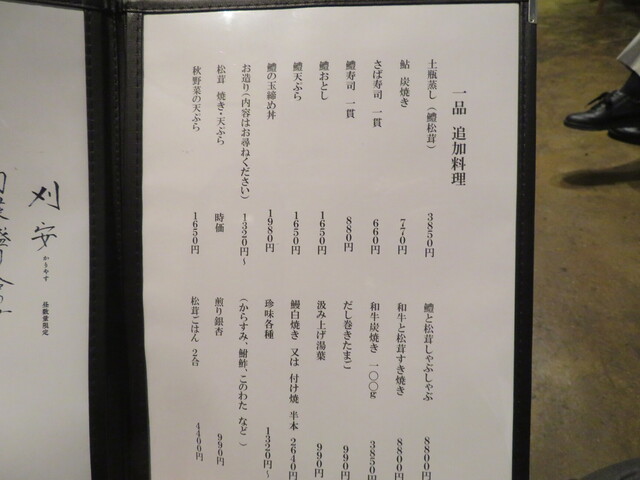 一品 追加料理
土瓶蒸し（鱧松茸） 3850円
鮎 炭焼き 770円
さば寿司 一貫 660円
鱧寿司 一貫 880円
鱧おとし 1650円
鱧天ぷら 1650円
鱧の玉締め丼 1980円
お造り（内容はお尋ねください） 1320円～
松茸 焼き・天ぷら 時価
秋野菜の天ぷら 1650円
鱧と松茸しゃぶしゃぶ 8800円
和牛と松茸すき焼き 8800円
和牛炭焼き 一〇〇g 3850円
だし巻きたまご 990円
汲み上げ湯葉 990円
鰻白焼き 又は 付け焼 半本 2640円
珍味各種 1320円～
（からすみ、鮒鮓、このわた など）
煎り銀杏 990円
松茸ごはん 2合 4400円
刈安
かりやす
昼数量限定